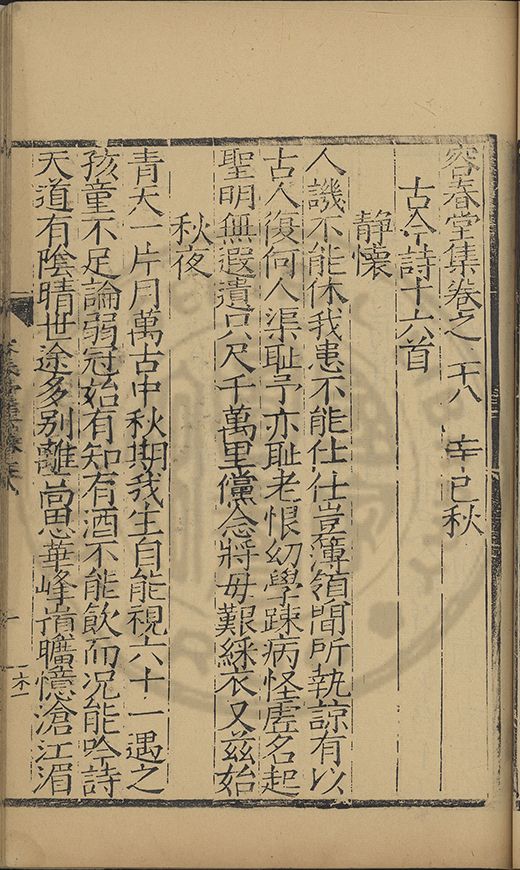 容春堂集卷之十八 辛巳秋
古今詩十六首
靜懷
人譏不能休我患不能仕仕豈簿領間所執諒有以
古人復何人渠耻予亦耻老恨幼學踈病怪虛名起
聖明無遐遺只尺千萬里儻念將毋艱綵衣又兹始
秋夜
青天一片月萬古中秋期我生自能視六十一遇之
孩童不足論弱冠始有知有酒不能飲而况能吟詩
天道有陰晴世途多别離尚思華峰崝曠憶滄江湄